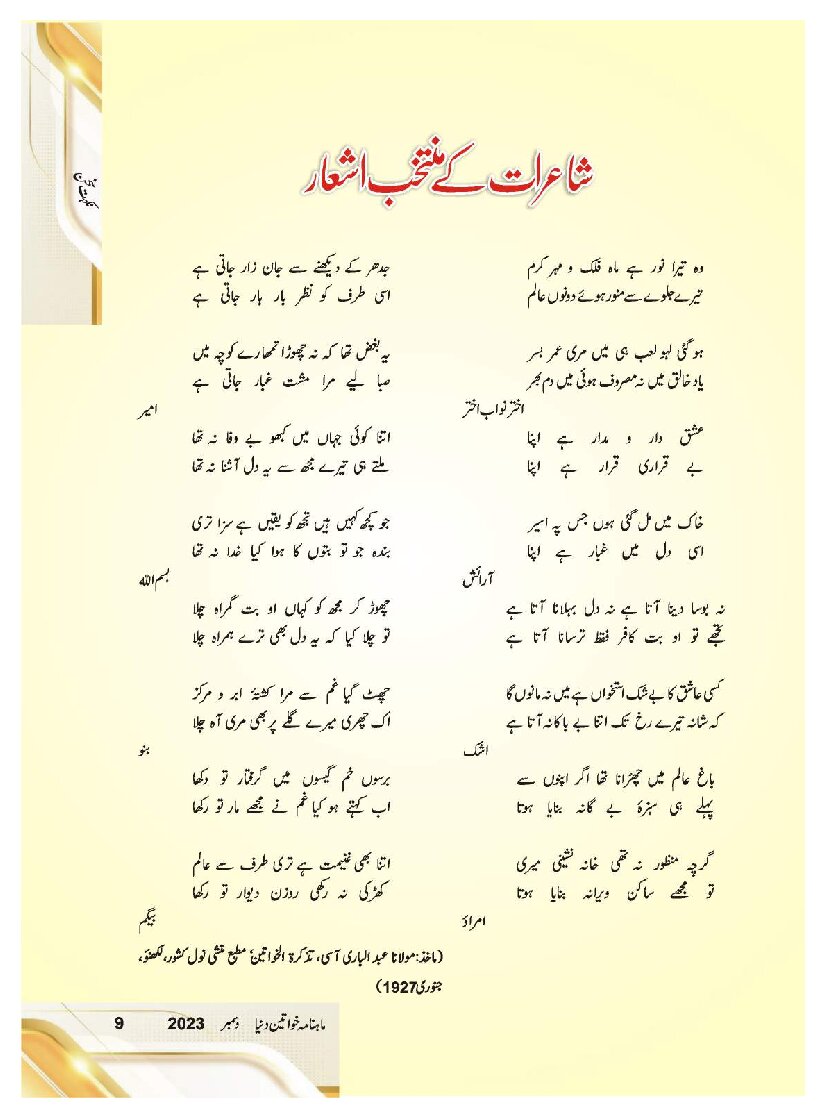 نگہت سخن
شاعرات کے منتخب اشعار
وہ تیرا نور ہے ماہ فلک و مہر کرم
تیرے جلوے سے منور ہوئے دونوں عالم
ہوگئی لہو لعب ہی میں مری عمر بسر
یاد خالق میں نہ مصروف ہوئی میں دم بھر
اختر نواب اختر
عشق دار و مدار ہے اپنا
بے قراری قرار ہے اپنا
خاک میں مل گئی ہوں جس پہ اسیر
اسی دل میں غبار ہے اپنا
آرائش
نہ بوسا دینا آتا ہے نہ دل بہلانا آتا ہے
تجھے تو او بت کافر فقط ترسانا آتا ہے
کسی عاشق کا بے شک استخواں ہے میں نہ مانوں گا
کہ شانہ تیرے رخ تک اتنا بے باکانہ آتا ہے
اشک
باغ عالم میں چھڑانا تھا اگر اپنوں سے
پہلے ہی سبزۂ بے گانہ بنایا ہوتا
گرچہ منظور نہ تھی خانہ نشینی میری
تو مجھے ساکن ویرانہ بنایا ہوتا
امراؤ
جدھر کے دیکھنے سے جان زار جاتی ہے
اسی طرف کو نظر بار بار جاتی ہے
یہ بغض تھا کہ نہ چھوڑا تمھارے کوچہ میں
صبا لیے مرا مشت غبار جاتی ہے
امیر
اتنا کوئی جہاں میں کبھو بے وفا نہ تھا
ملتے ہی تیرے مجھ سے یہ دل آشنا نہ تھا
جو کچھ کہیں ہیں تجھ کو یقیں ہے سزا تری
بندہ جو تو بتوں کا ہوا کیا خدا نہ تھا
بسم اللہ
چھوڑ کر مجھ کو کہاں او بت گمراہ چلا
تو چلا کیا کہ یہ دل بھی ترے ہمراہ چلا
چھٹ گیا غم سے مرا کشتۂ ابر و مرکز
اک چھری میرے گلے پر بھی مری آہ چلا
بنو
برسوں خم گیسوں میں گرفتار تو رکھا
اب کہتے ہو کیا غم نے مجھے مار تو رکھا
اتنا بھی غنیمت ہے تری طرف سے عالم
کھڑکی نہ رکھی روزن دیوار تو رکھا
بیگم
(ماخذ: مولانا عبدالباری آسی، تذکرۃ الخواتین، مطبع منشی نول کشور، لکھنؤ،
جنوری 1927)
ماہنامہ خواتین دنیا دسمبر 2023 9